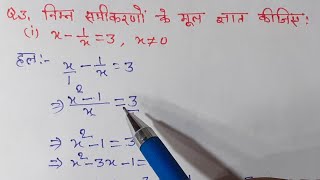 Q3. निम्न समीकरणों के मूल ज्ञात कीजिए:
(i) x - 1/x = 3, x ≠ 0
हल:- x/1 - 1/x = 3
⇒ x² - 1 / x = 3
⇒ x² - 1 = 3
⇒ x² - 3x - 1 =